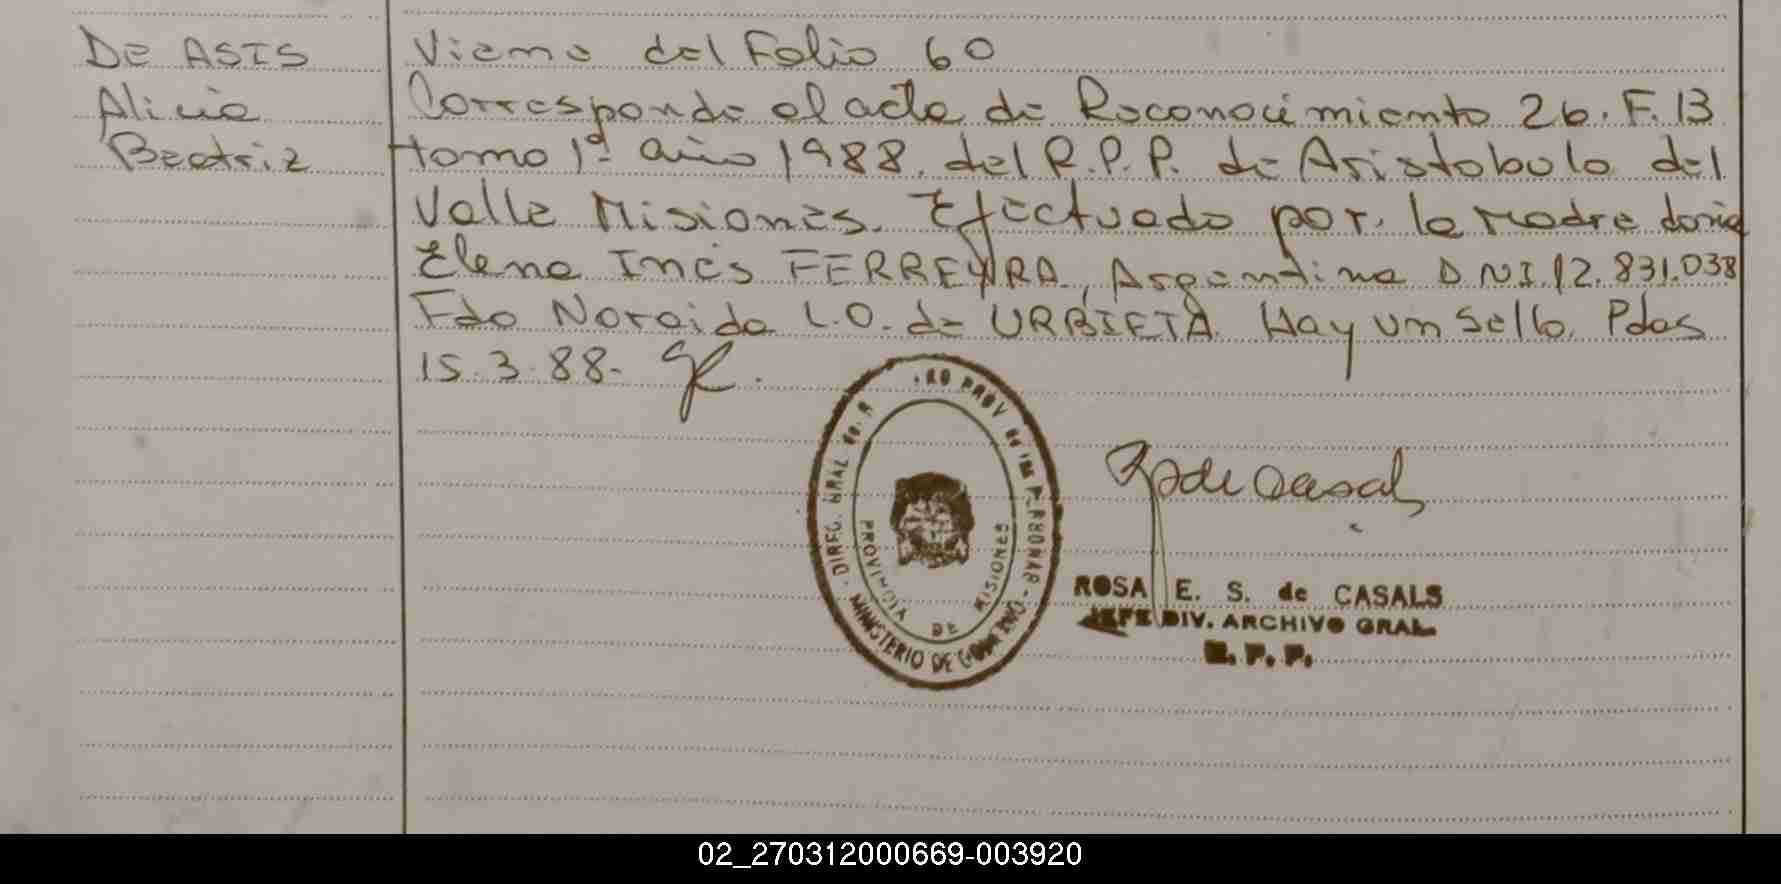 DE ASIS
Alicia
Beatriz
Viene del Folio 60
Corresponde al acta de Reconocimiento 26. F. 13
tomo 1º año 1988. del R.P.P. de Aristobulo del
Valle Misiones. Efectuado por. la madre doña
Elena Inés FERREYRA, Argentina D.N.I. 12.831.038
Fdo Noraida L.O. de URBIETA. Hay un sello. Pdas
15.3.88-
DIREC. GRAL de. R PROV de PERSONAS
PROVINCIA DE MISIONES
MINISTERIO DE
R de Casals
ROSA E. S. de CASALS
JEFE DIV. ARCHIVO GRAL.
R. P. P.
02_270312000669-003920